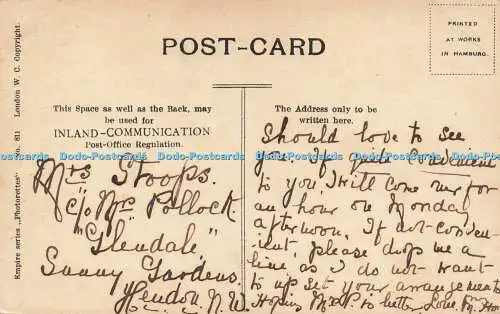 POST-CARD
PRINTED
AT WORKS
IN HAMBURG.
Empire series "Photorette" No. 81 London W. C. Copyright.
This Space as well as the Back, may
be used for
INLAND-COMMUNICATION
Post-Office Regulation.
The Address only to be
written here.
Mrs Stoops.
c/o Mrs Pollock.
"Glendale"
Sunny Gardens.
Hendon. N.W.
Should love to see
you. If quite convenient
to you I will come over for
an hour on Monday
afternoon. If not conven-
ient, please drop me a
line as I do not want
to up set your arrangements
Hoping Mr P. is better Love.
Dodo-Postcards Dodo-Postcards Dodo-Postcards Dodo-Postcards
Dodo-Postcards Dodo-Postcards Dodo-Postcards Dodo-Postcards